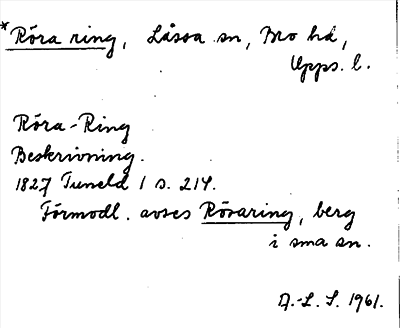 *Röra ring, Låssa sn, Bro hd,
Upps. l.
Röra-Ring
Beskrivning.
1827 Tuneld 1 s. 214.
Förmodl. avses Rösaring, berg
i sma sn.
D.-L. S. 1961.